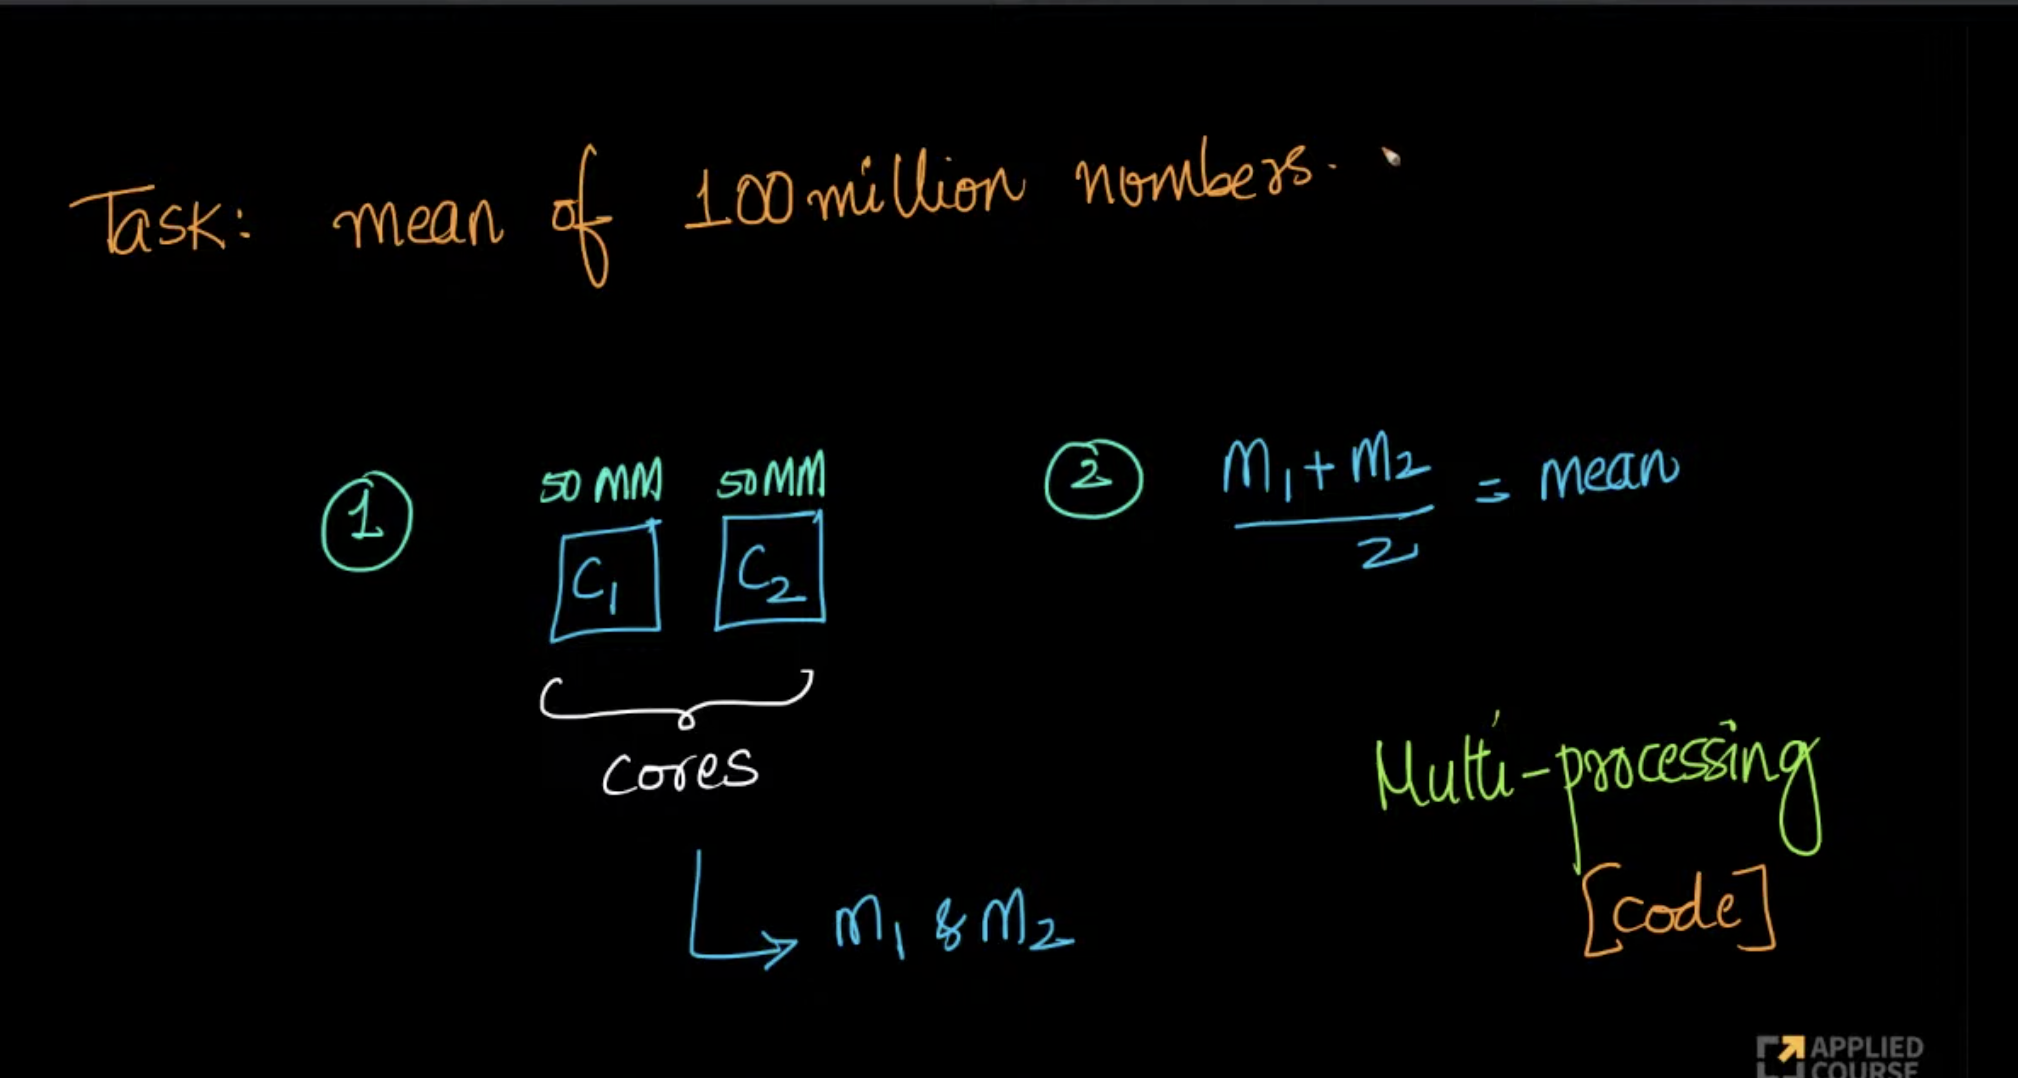 Task: mean of 100 million numbers.
1
50 MM 50 MM
C1 C2
cores
M1 & M2
2
M1 + M2
2
= mean
Multi-processing
[code]
APPLIED
COURSE